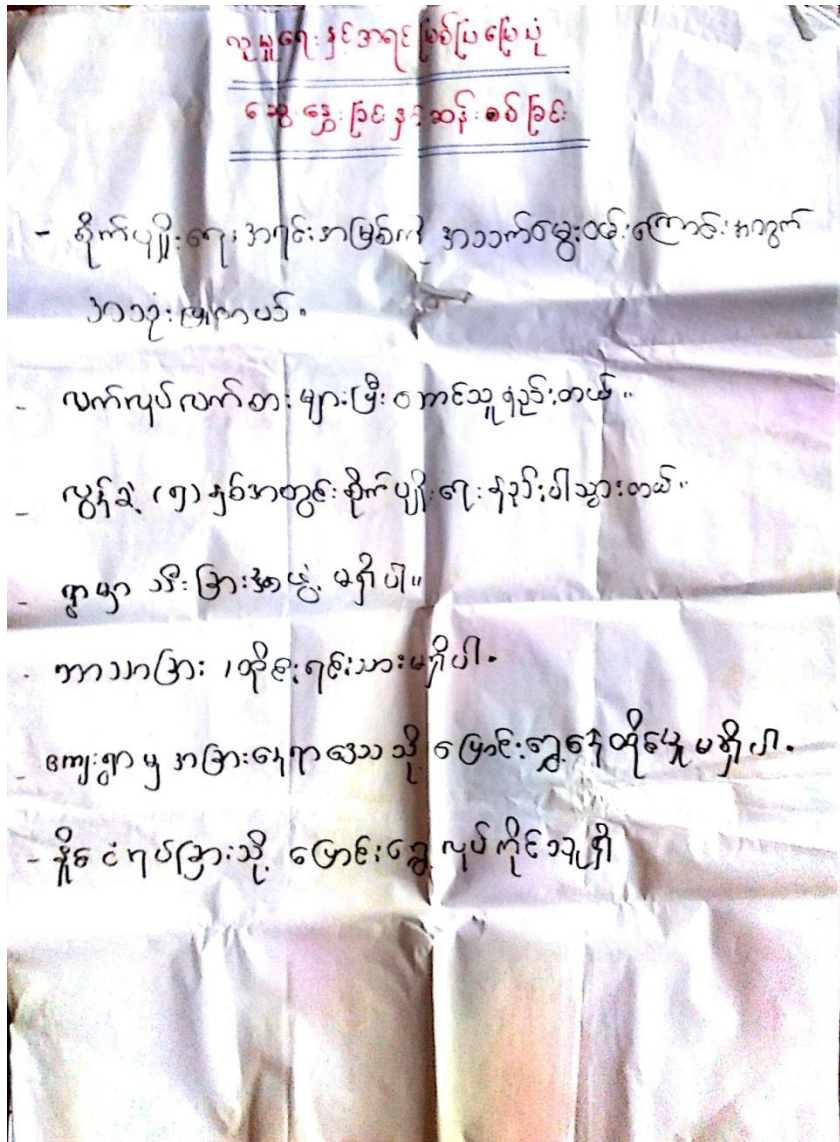 လူမှုရေးနှင့်အရင်းမြစ်ပြမြေပုံ
ဆွေးနွေးခြင်းနှင့်ဆန်းစစ်ခြင်း
- စိုက်ပျိုးရေးအရင်းအမြစ်ကို အသက်မွေးဝမ်းကြောင်းအတွက်
အသုံးပြုတာပဲ။
- လက်လုပ်လက်စားများပြီး တောင်သူနည်းတယ်။
- လွန်ခဲ့ (၅) နှစ်အတွင်း စိုက်ပျိုးရေးနည်းပါသွားတယ်။
- ရွာမှာ သီးခြားအဖွဲ့ မရှိပါ။
- ဘာသာခြား၊ တိုင်းရင်းသားမရှိပါ။
- ကျေးရွာမှ အခြားနေရာဒေသသို့ ပြောင်းရွှေ့နေထိုင်မှုမရှိပါ။
- နိုင်ငံရပ်ခြားသို့ ပြောင်းရွှေ့လုပ်ကိုင်သူရှိ